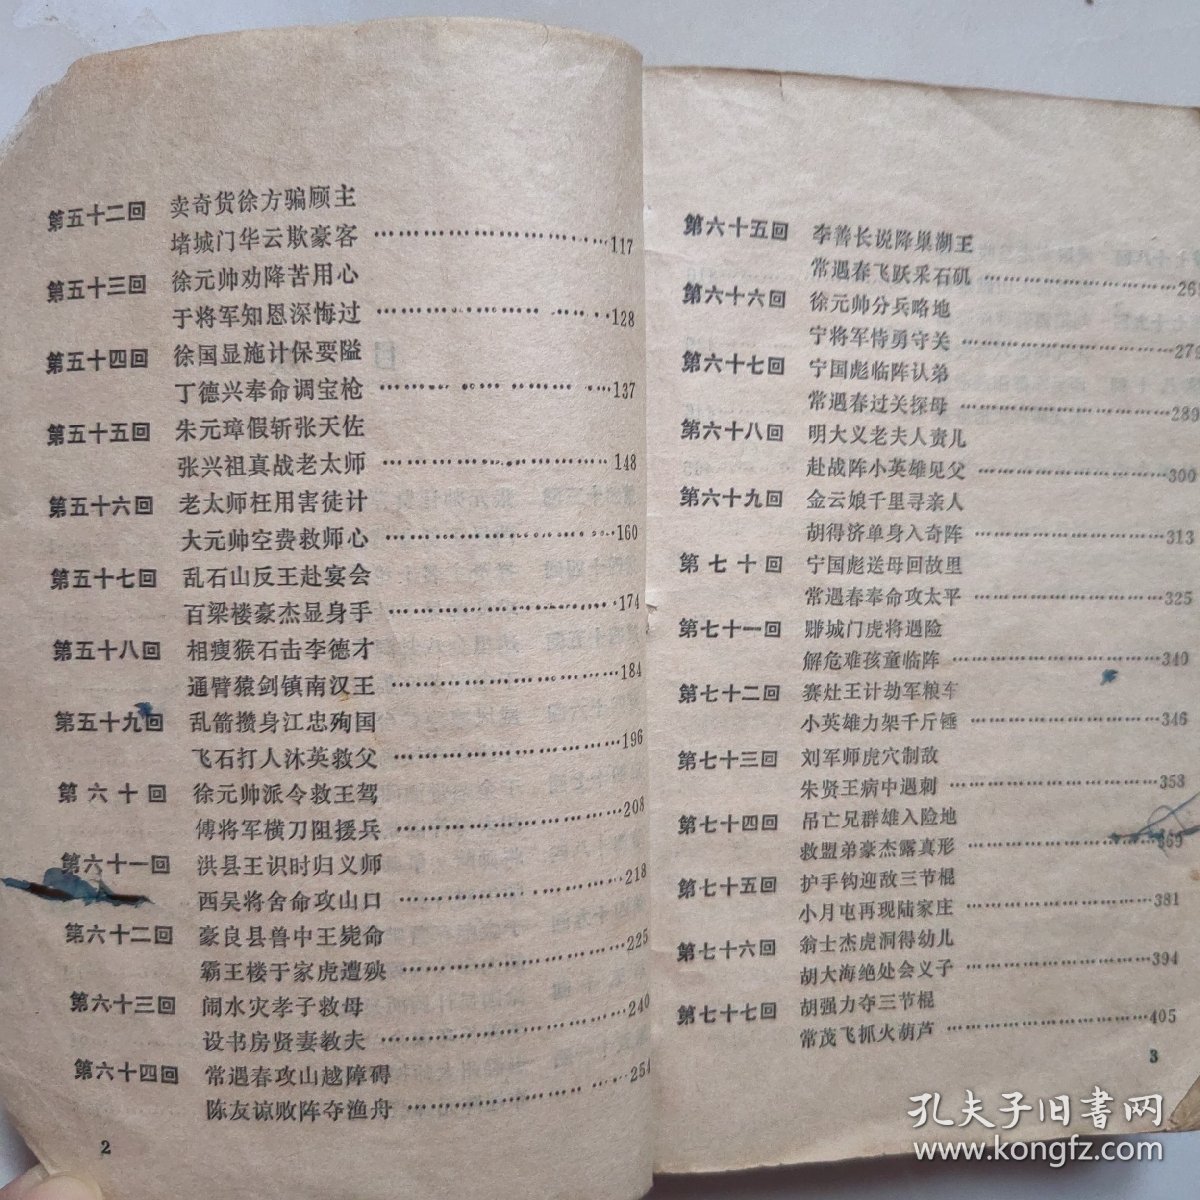 第五十二回 卖奇货徐方骗顾主
堵城门华云欺豪客 ………………………… 117
第五十三回 徐元帅劝降苦用心
于将军知恩深悔过 ………………………… 128
第五十四回 徐国显施计保要隘
丁德兴奉命调宝枪 ………………………… 137
第五十五回 朱元璋假斩张天佐
张兴祖真战老太师 ………………………… 148
第五十六回 老太师枉用害徒计
大元帅空费救师心 ………………………… 160
第五十七回 乱石山反王赴宴会
百梁楼豪杰显身手 ………………………… 174
第五十八回 相瘦猴石击李德才
通臂猿剑镇南汉王 ………………………… 184
第五十九回 乱箭攒身江忠殉国
飞石打人沐英救父 ………………………… 196
第六十回 徐元帅派令救王驾
傅将军横刀阻援兵 ………………………… 208
第六十一回 洪县王识时归义师
西吴将舍命攻山口 ………………………… 218
第六十二回 豪良县兽中王毙命
霸王楼于家虎遭殃 ………………………… 225
第六十三回 闹水灾孝子救母
设书房贤妻教夫 ………………………… 240
第六十四回 常遇春攻山越障碍
陈友谅败阵夺渔舟 ………………………… 254
2
第六十五回 李善长说降巢湖王
常遇春飞跃采石矶 ………………………… 26
第六十六回 徐元帅分兵略地
宁将军恃勇守关 ………………………… 279
第六十七回 宁国彪临阵认弟
常遇春过关探母 ………………………… 289
第六十八回 明大义老夫人责儿
赴战阵小英雄见父 ………………………… 300
第六十九回 金云娘千里寻亲人
胡得济单身入奇阵 ………………………… 313
第七十回 宁国彪送母回故里
常遇春奉命攻太平 ………………………… 325
第七十一回 赚城门虎将遇险
解危难孩童临阵 ………………………… 340
第七十二回 赛灶王计劫军粮车
小英雄力架千斤锤 ………………………… 346
第七十三回 刘军师虎穴制敌
朱贤王病中遇刺 ………………………… 358
第七十四回 吊亡兄群雄入险地
救盟弟豪杰露真形 ………………………… 369
第七十五回 护手钩迎敌三节棍
小月屯再现陆家庄 ………………………… 381
第七十六回 翁士杰虎洞得幼儿
胡大海绝处会义子 ………………………… 394
第七十七回 胡强力夺三节棍
常茂飞抓火葫芦 ………………………… 405
3
孔夫子旧书网
www.kongfz.com